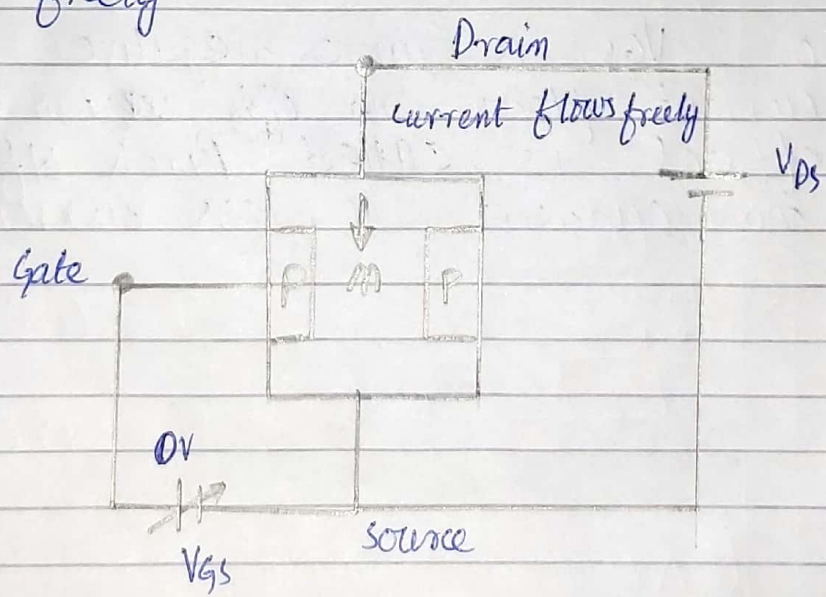 freely
Drain
current flows freely
VDS
Gate
P n P
0V
VGS
Source